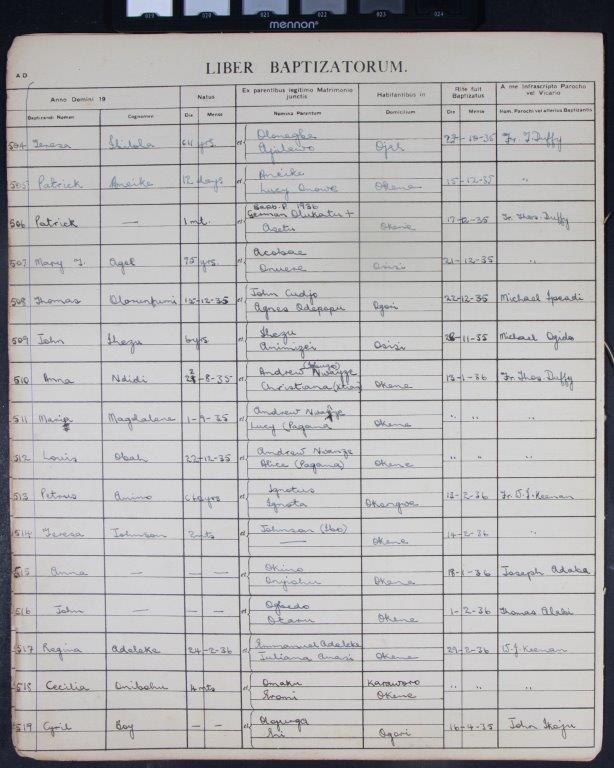 019 020 021 022 023
mennon
LIBER BAPTIZATORUM.
A D
Anno Domini 19 Natus Ex parentibus legitimo Matrimonio junctis Habitantibus in Rite fuit Baptizatus A me Infrascripto Parocho vel Vicario
Baptizandi Nomen Cognomen Die Mense Nomina Parentum Domicilium Die Mense Nom. Parochi vel alterius Baptizantis
504 Teresa yrs. et -10-35 Fr. T Duffy
505 Patrick Aneike 12 days et Aneike
Lucy Okene 15-12-35 "
506 Patrick — 1 mt. et German +
Okene -35 Fr. Thos. Duffy
507 Mary Agel 75 yrs. et Acobae
Osisi 21-12-35 "
508 Thomas Olorunfumi 15-12-35 et John Cudjo
Agnes Odepopu Ogori 22-12-35 Michael
509 John Ihegu 6 yrs et Ihegu
Osisi -11-35 Michael Ogido
510 Anna Ndidi -8-35 et Andrew Nwanze
Christiana Okene 13-1-36 Fr. Thos. Duffy
511 Maria Magdalene 1-9-35 et Andrew Nwanze
Lucy (Pagana Okene " " "
512 Louis Obah 22-12-35 et Andrew Nwanze
Alice (Pagana) Okene " " "
513 Petrus Animo 60 yrs et Ignotus
Ignota Okengwe 13-2-36 Fr. W.J. Keenan
514 Teresa Johnson 2 mts et Johnson (Ibo)
— Okene 14-2-36 "
515 Anna — — — et Okino
Onyiohu Okene 18-1-36 Joseph Adaba
516 John — — — et
Otaru Okene 1-2-36 Thomas Alabi
517 Regina Adeleke 24-2-36 et Emmanuel Adeleke
Juliana Okene 29-2-36 W.J. Keenan
518 Cecilia Onibohu 4 mts et Omaku
Karaworo
Okene " " "
519 Cyril Boy — — et
Ogori 16-4-35 John